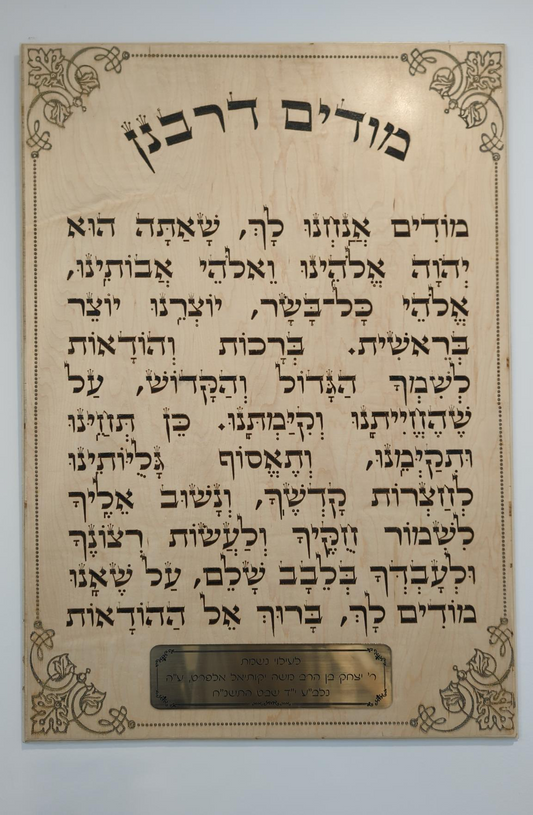 מודים דרבנן
מוֹדִים אֲנַחְנוּ לָךְ, שָׁאַתָּה הוּא
יְהֹוָה אֱלֹהֵינוּ וֵאלֹהֵי אֲבוֹתֵינוּ,
אֱלֹהֵי כָּל־בָּשָׂר, יוֹצְרֵנוּ יוֹצֵר
בְּרֵאשִׁית. בְּרָכוֹת וְהוֹדָאוֹת
לְשִׁמְךָ הַגָּדוֹל וְהַקָּדוֹשׁ, עַל
שֶׁהֶחֱיִיתָנוּ וְקִיַּמְתָּנוּ. כֵּן תְּחַיֵּנוּ
וּתְקַיְּמֵנוּ, וְתֶאֱסוֹף גָּלֻיּוֹתֵינוּ
לְחַצְרוֹת קָדְשֶׁךָ, וְנָשׁוּב אֵלֶיךָ
לִשְׁמוֹר חֻקֶּיךָ וְלַעֲשׂוֹת רְצוֹנֶךָ
וּלְעָבְדְּךָ בְּלֵבָב שָׁלֵם, עַל שֶׁאָנוּ
מוֹדִים לָךְ, בָּרוּךְ אֵל הַהוֹדָאוֹת
לעילוי נשמת
ר' יצחק בן הרב משה יקותיאל אלפרט, ע"ה
נלב"ע י"ד שבט התשנ"ח